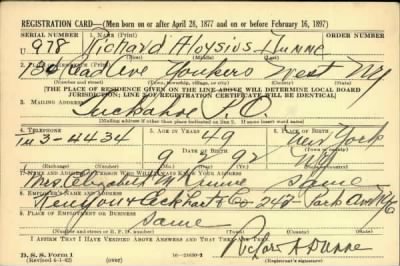 REGISTRATION CARD—(Men born on or after April 28, 1877 and on or before February 16, 1897)
SERIAL NUMBER 1. NAME (Print) ORDER NUMBER
U 978 Richard Aloysius Dunne
2. PLACE OF RESIDENCE (Print)
130 Read Ave Yonkers West NY
(Number and street) (Town, township, village, or city) (County) (State)
[THE PLACE OF RESIDENCE GIVEN ON THE LINE ABOVE WILL DETERMINE LOCAL BOARD
JURISDICTION; LINE 2 OF REGISTRATION CERTIFICATE WILL BE IDENTICAL]
3. MAILING ADDRESS
Tuckahoe P.O.
[Mailing address if other than place indicated on line 2. If same insert word same]
4. TELEPHONE 5. AGE IN YEARS 6. PLACE OF BIRTH
3-4434 49 New York
DATE OF BIRTH
9 2 92 NY
(Exchange) (Number) (Mo.) (Day) (Yr.) (State or country)
7. NAME AND ADDRESS OF PERSON WHO WILL ALWAYS KNOW YOUR ADDRESS
Mrs Elizabeth M Dunne Same
8. EMPLOYER'S NAME AND ADDRESS
Kenyon & Eckhardt Co 247 Park Ave NYC
9. PLACE OF EMPLOYMENT OR BUSINESS
Same
(Number and street or R. F. D. number) (Town) (County) (State)
I AFFIRM THAT I HAVE VERIFIED ABOVE ANSWERS AND THAT THEY ARE TRUE.
D. S. S. Form 1
(Revised 4-1-42) (over) 16-21630-2
Dunne
(Registrant's signature)